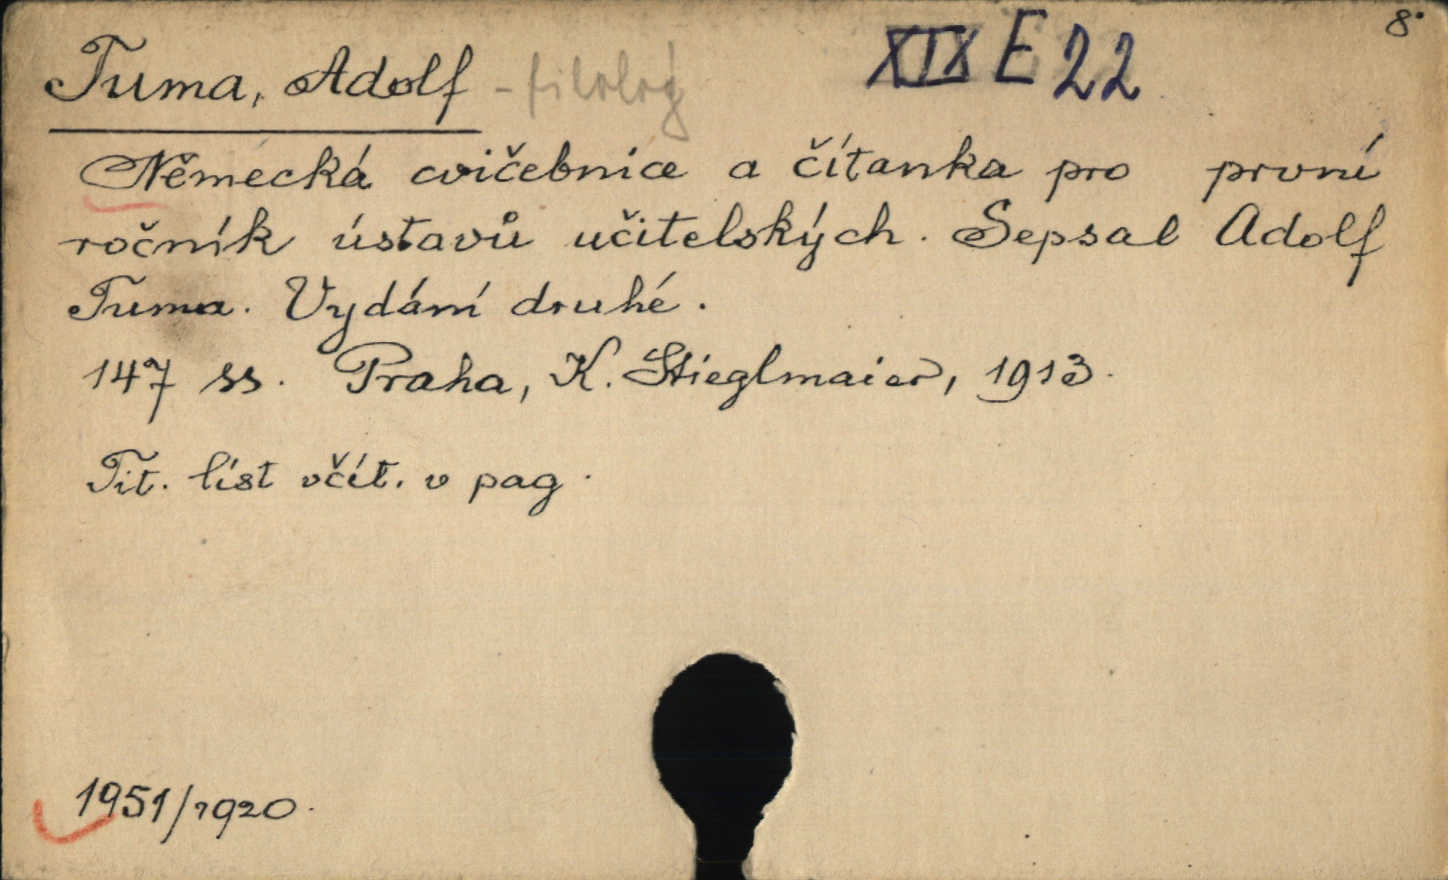 8°
XIX E 22
Tuma, Adolf - filolog
Německá cvičebnice a čítanka pro první
ročník ústavů učitelských. Sepsal Adolf
Tuma. Vydání druhé.
147 ss. Praha, K. Stieglmaier, 1913.
Tit. list včít. v pag.
1951/1920.